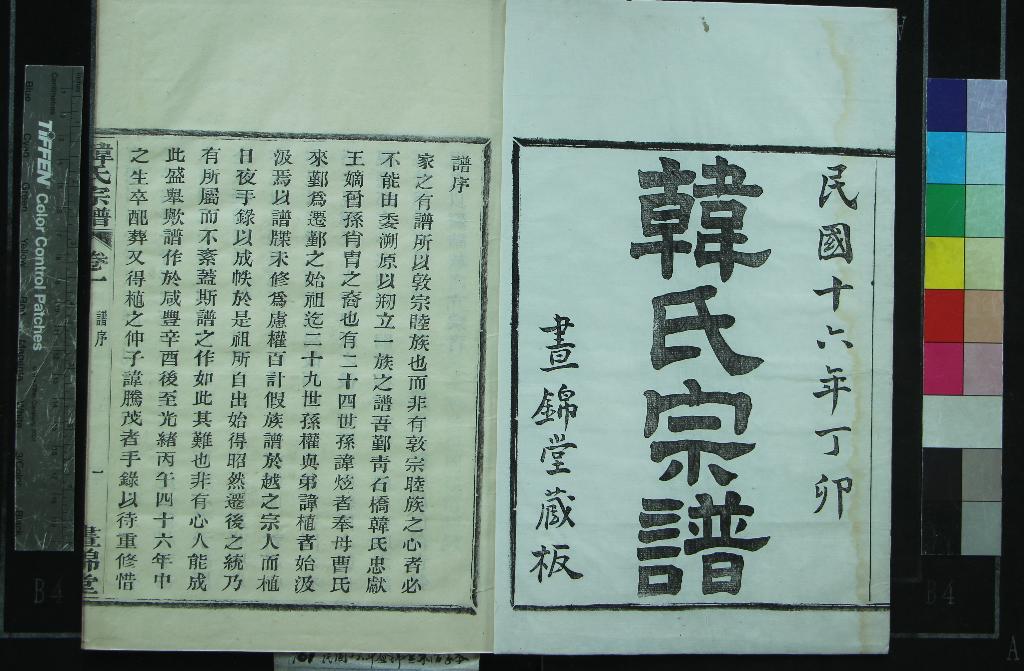 民國十六年丁卯
韓氏宗譜
晝錦堂藏板
譜序
家之有譜所以敦宗睦族也而非有敦宗睦族之心者必
不能由委溯原以剏立一族之譜吾鄞靑石橋韓氏忠獻
王嫡曾孫肖冑之裔也有二十四世孫諱炫者奉母曹氏
來鄞爲遷鄞之始祖迄二十九世孫權與弟諱植者始汲
汲焉以譜牒未修爲慮權百計假族譜於越之宗人而植
日夜手錄以成帙於是祖所自出始得昭然遷後之統乃
有所屬而不紊蓋斯譜之作如此其難也非有心人能成
此盛舉歟譜作於咸豐辛酉後至光緒丙午四十六年中
之生卒配葬又得植之仲子諱騰茂者手錄以待重修惜
韓氏宗譜 卷一 譜序 一 晝錦堂
TIFFEN Color Control Patches
B4
B4
A